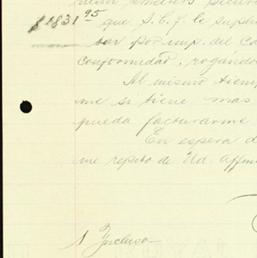 $1831.95 que S.E.f. le
por imp. del
conformidad, rogando
Al mismo tiemp
me si tiene mas
queda facturarme
En espera d
me repito de Ud. Affm
1 Incluso